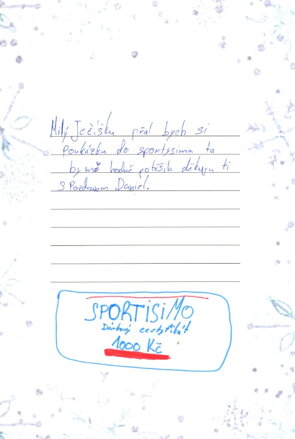 Milý Ježíšku přál bych si
poukázku do sportisima ta
by mě hodně potěšila děkuju ti
S Pozdravem Daniel.
SPORTISIMO
Dárkový certifikát
1000 Kč